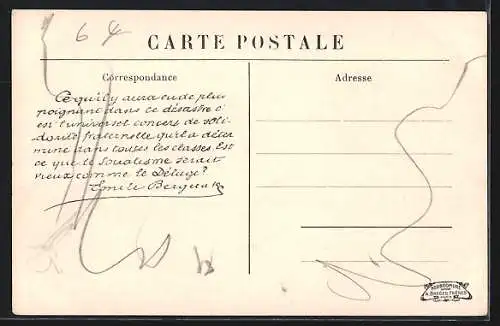 6 4
CARTE POSTALE
Correspondance
Ce qu'il y aura eu de plus
poignant dans ce désastre c'
est l'universel concers de soli-
darité fraternelle qu'il a déter
miné dans toutes les classes. Est
ce que le Socialisme serait
vieux comme le Déluge?
Emile Bergerat
Adresse